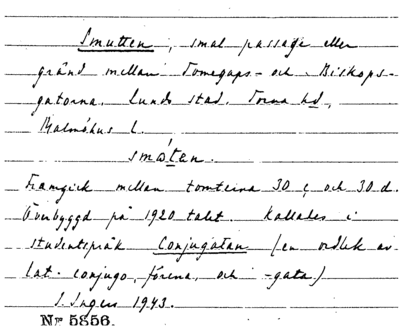 Smutten, smal passage eller
gränd mellan Tomegaps- och Biskops-
gatorna. Lunds stad. Torna hd,
Malmöhus l.
småten.
Framgick mellan tomterna 30 c och 30 d.
Överbyggd på 1920 talet. Kallades i
studentspråk Conjugatan (en ordlek av
lat. conjugo, förena, och -gata.)
I. Ingers 1943.
Nr 5856.